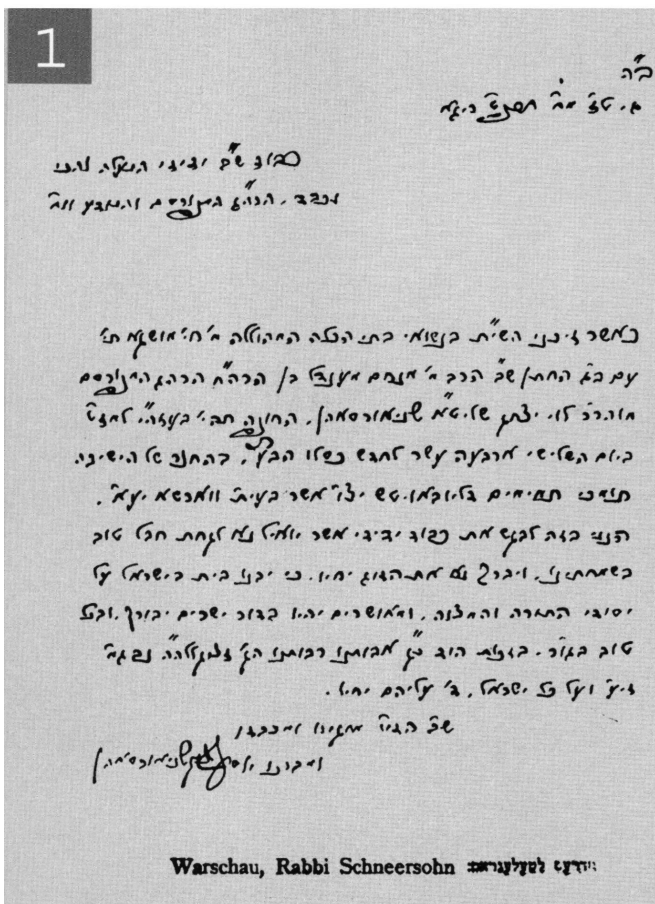 1
ב"ה
ג, טז מ"ח תרפ"ט ריגא
כבוד ש"ב ידידי הנעלה והכי
נכבד, הרה"ג המפורסם והנודע וו"ח
כאשר זיכני השי"ת בנשואי בתי הכלה המהוללה מ' חי' מושקא תי'
עם ב"ג החתן ש"ב הרב מ' מנחם מענדל בן הרה"ח הרה"ג המפורסם
מוהר"ר לוי יצחק שליט"א שניאורסאהן, החופה תהי' בעזה"י למז"ט
ביום השלישי ארבעה עשר לחדש כסלו הבע"ל, בהחצר של הישיבה
תומכי תמימים דליובאוויטש יצ"ו אשר בעי"ת ווארשא יע"א.
הנני בזה לבקש את כבוד ידידי אשר יואיל נא לקחת חבל טוב
בשמחתינו, ויברך נא את הזוג יחיו, כי יבנו בית בישראל על
יסודי התורה והמצוה, ומאושרים יהיו בדור ישרים יבורך, ובכל
טוב בגו"ר, בזכות הוד כ"ק אבותינו רבותינו הק' זצוקללה"ה נבג"מ
זי"ע ועל כל ישראל, ד' עליהם יחיו.
ש"ב הדו"ש מוקירו ומכבדו
ומברכו יוסף יצחק שניאורסאהן
Warschau, Rabbi Schneersohn אדרעס לטעלעגראמ: